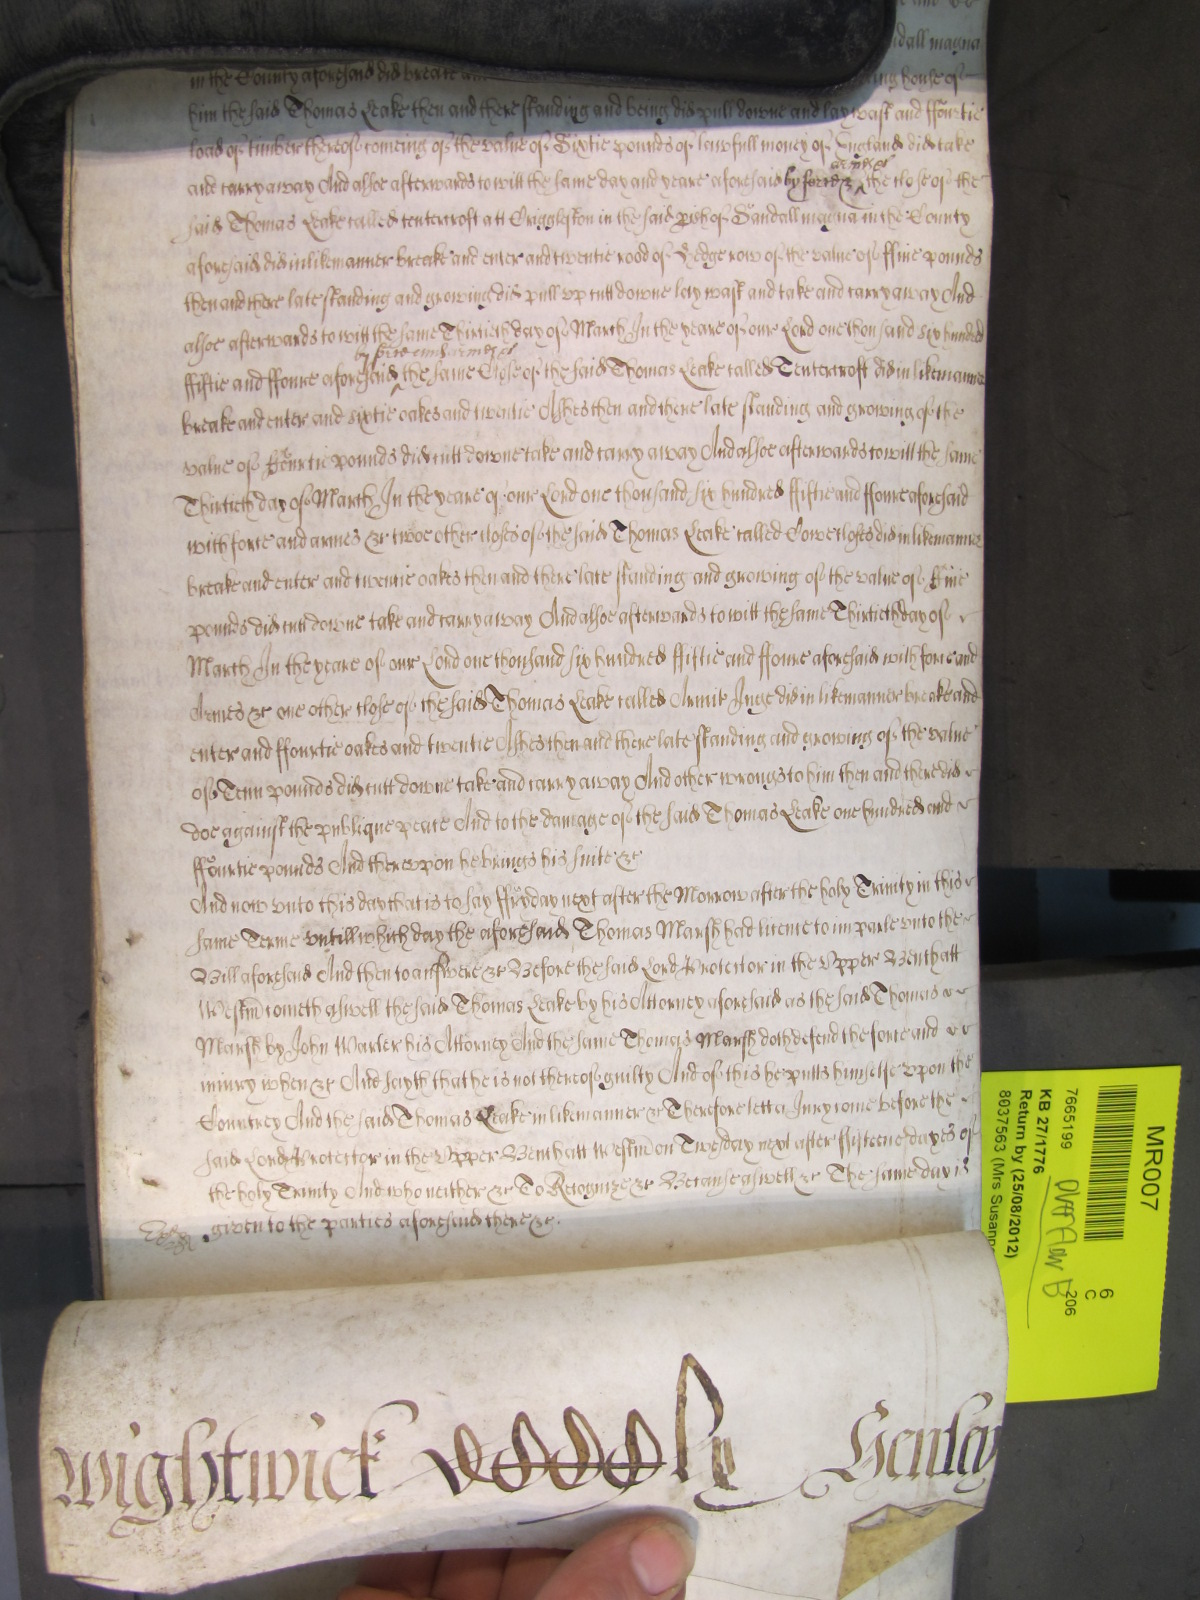 dall magna
in the County aforesaid did breake and
ing house of
him the said Thomas Leake then and there standing and being did pull downe and lay wast and ffourtie
load of timber thereof comeing of the value of Sixtie pounds of lawfull money of England did take
armes &c
and carry away And alsoe afterwards to witt the same day and yeare aforesaid by force & the close of the
said Thomas Leake called tentercroft att Criggleston in the said pish of Sandall magna in the County
aforesaid did in like manner breake and enter and twentie rood of hedge row of the value of ffiue pounds
then and there late standing and growing did pull vp cutt downe lay wast and take and carry away And
alsoe afterwards to witt the same Thirtieth day of March In the yeare of our Lord one thousand six hundred
by force and armes &c
ffiftie and ffoure aforesaid the same Close of the said Thomas Leake called Tentercroft did in like manner
breake and enter and sixtie oakes and twentie Ashes then and there late standing and growing of the
value of ffourtie pounds did cutt downe take and carry away And alsoe afterwards to witt the same
Thirtieth day of March In the yeare of our Lord one thousand six hundred ffiftie and ffoure aforesaid
with force and armes &c twoe other closes of the said Thomas Leake called Cowe closes did in like manner
breake and enter and twentie oakes then and there late standing and growing of the value of ffiue
pounds did cutt downe take and carry away And alsoe afterwards to witt the same Thirtieth day of
March In the yeare of our Lord one thousand six hundred ffiftie and ffoure aforesaid with force and
Armes &c one other close of the said Thomas Leake called Armit Inge did in like manner breake and
enter and ffourtie oakes and twentie Ashes then and there late standing and growing of the value
of Tenn pounds did cutt downe take and carry away And other wrongs to him then and there did
doe against the publique peace And to the damage of the said Thomas Leake one hundred and
ffourtie pounds And therevpon he brings his suite &c
And now vnto this day that is to say ffryday next after the Morrow after the holy Trinity in this
same Terme vntill which day the aforesaid Thomas Marsh had licence to imparle vnto the
Bill aforesaid And then to answere &c Before the said Lord Protector in the Vpper Bench att
Westm cometh aswell the said Thomas Leake by his Attorney aforesaid as the said Thomas
Marsh by John Warter his Attorney And the same Thomas Marsh doth defend the force and
iniury when &c And sayth that he is not thereof guilty And of this he putts himselfe vpon the
Countrey And the said Thomas Leake in like manner &c Therefore lett a Jury come before the
said Lord Protector in the Vpper Bench att Westm on Twesday next after ffifteene dayes of
the holy Trinity And who neither &c To Recognize &c Because aswell &c The same day is
given to the parties aforesaid there &c.
Wightwick
Henley
MR007
7665199
6
C
206
KB 27/1776
Return by (25/08/2012)
8037563 (Mrs Susann